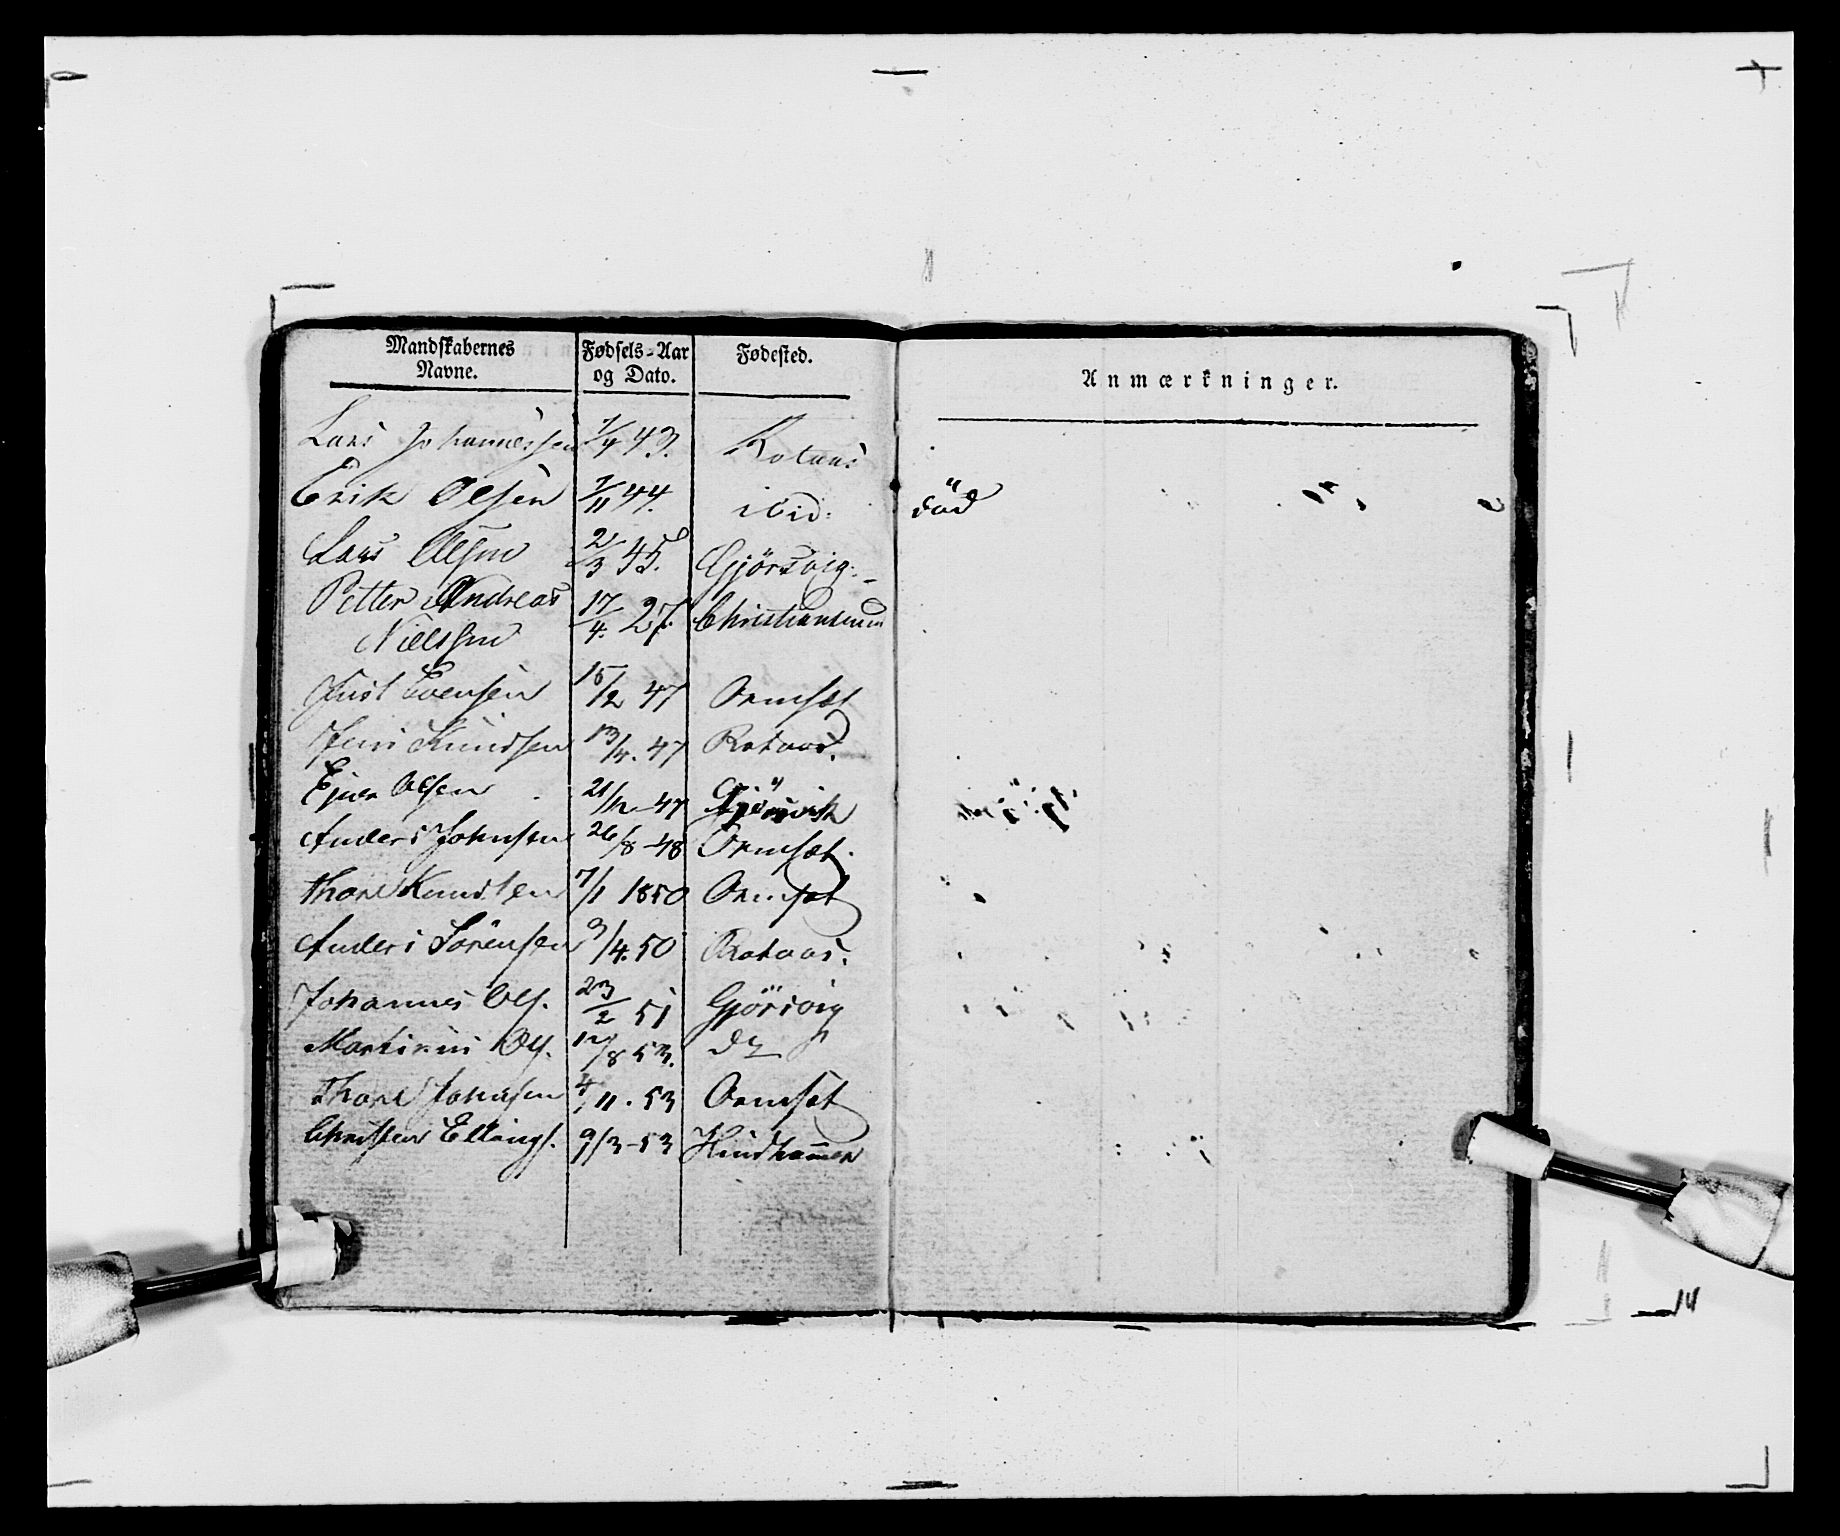 Mandskabernes Navne. Fødsels-Aar og Dato. Fødested. Anmærkninger.
Lars Johannessen 7/4 43. Rotaas
Erik Olsen 7/11 44. ibid: død
Lars Olsen 2/3 45. Gjörsvig.
Petter Andreas 17/4. 27. Christiansund
Nielssen
Just Evensen 15/12 47 Ormset
Jens Knudsen 13/4. 47 Rotaas.
Ejner Olsen 21/12-47 Gjörsvik
Anders Johnsen 26/8-48 Ormset.
Thore Knudsen 7/1 1850 Ormset
Anders Sörensen 9/4. 50 Rotaas.
Johannes Ols. 23/2 51 Gjörsvig
Martinus Ols. 12/8 53. do
Thore Johnsen 4/11. 53 Ormset
Christen Ellings. 9/3-53 Hindhammer
14